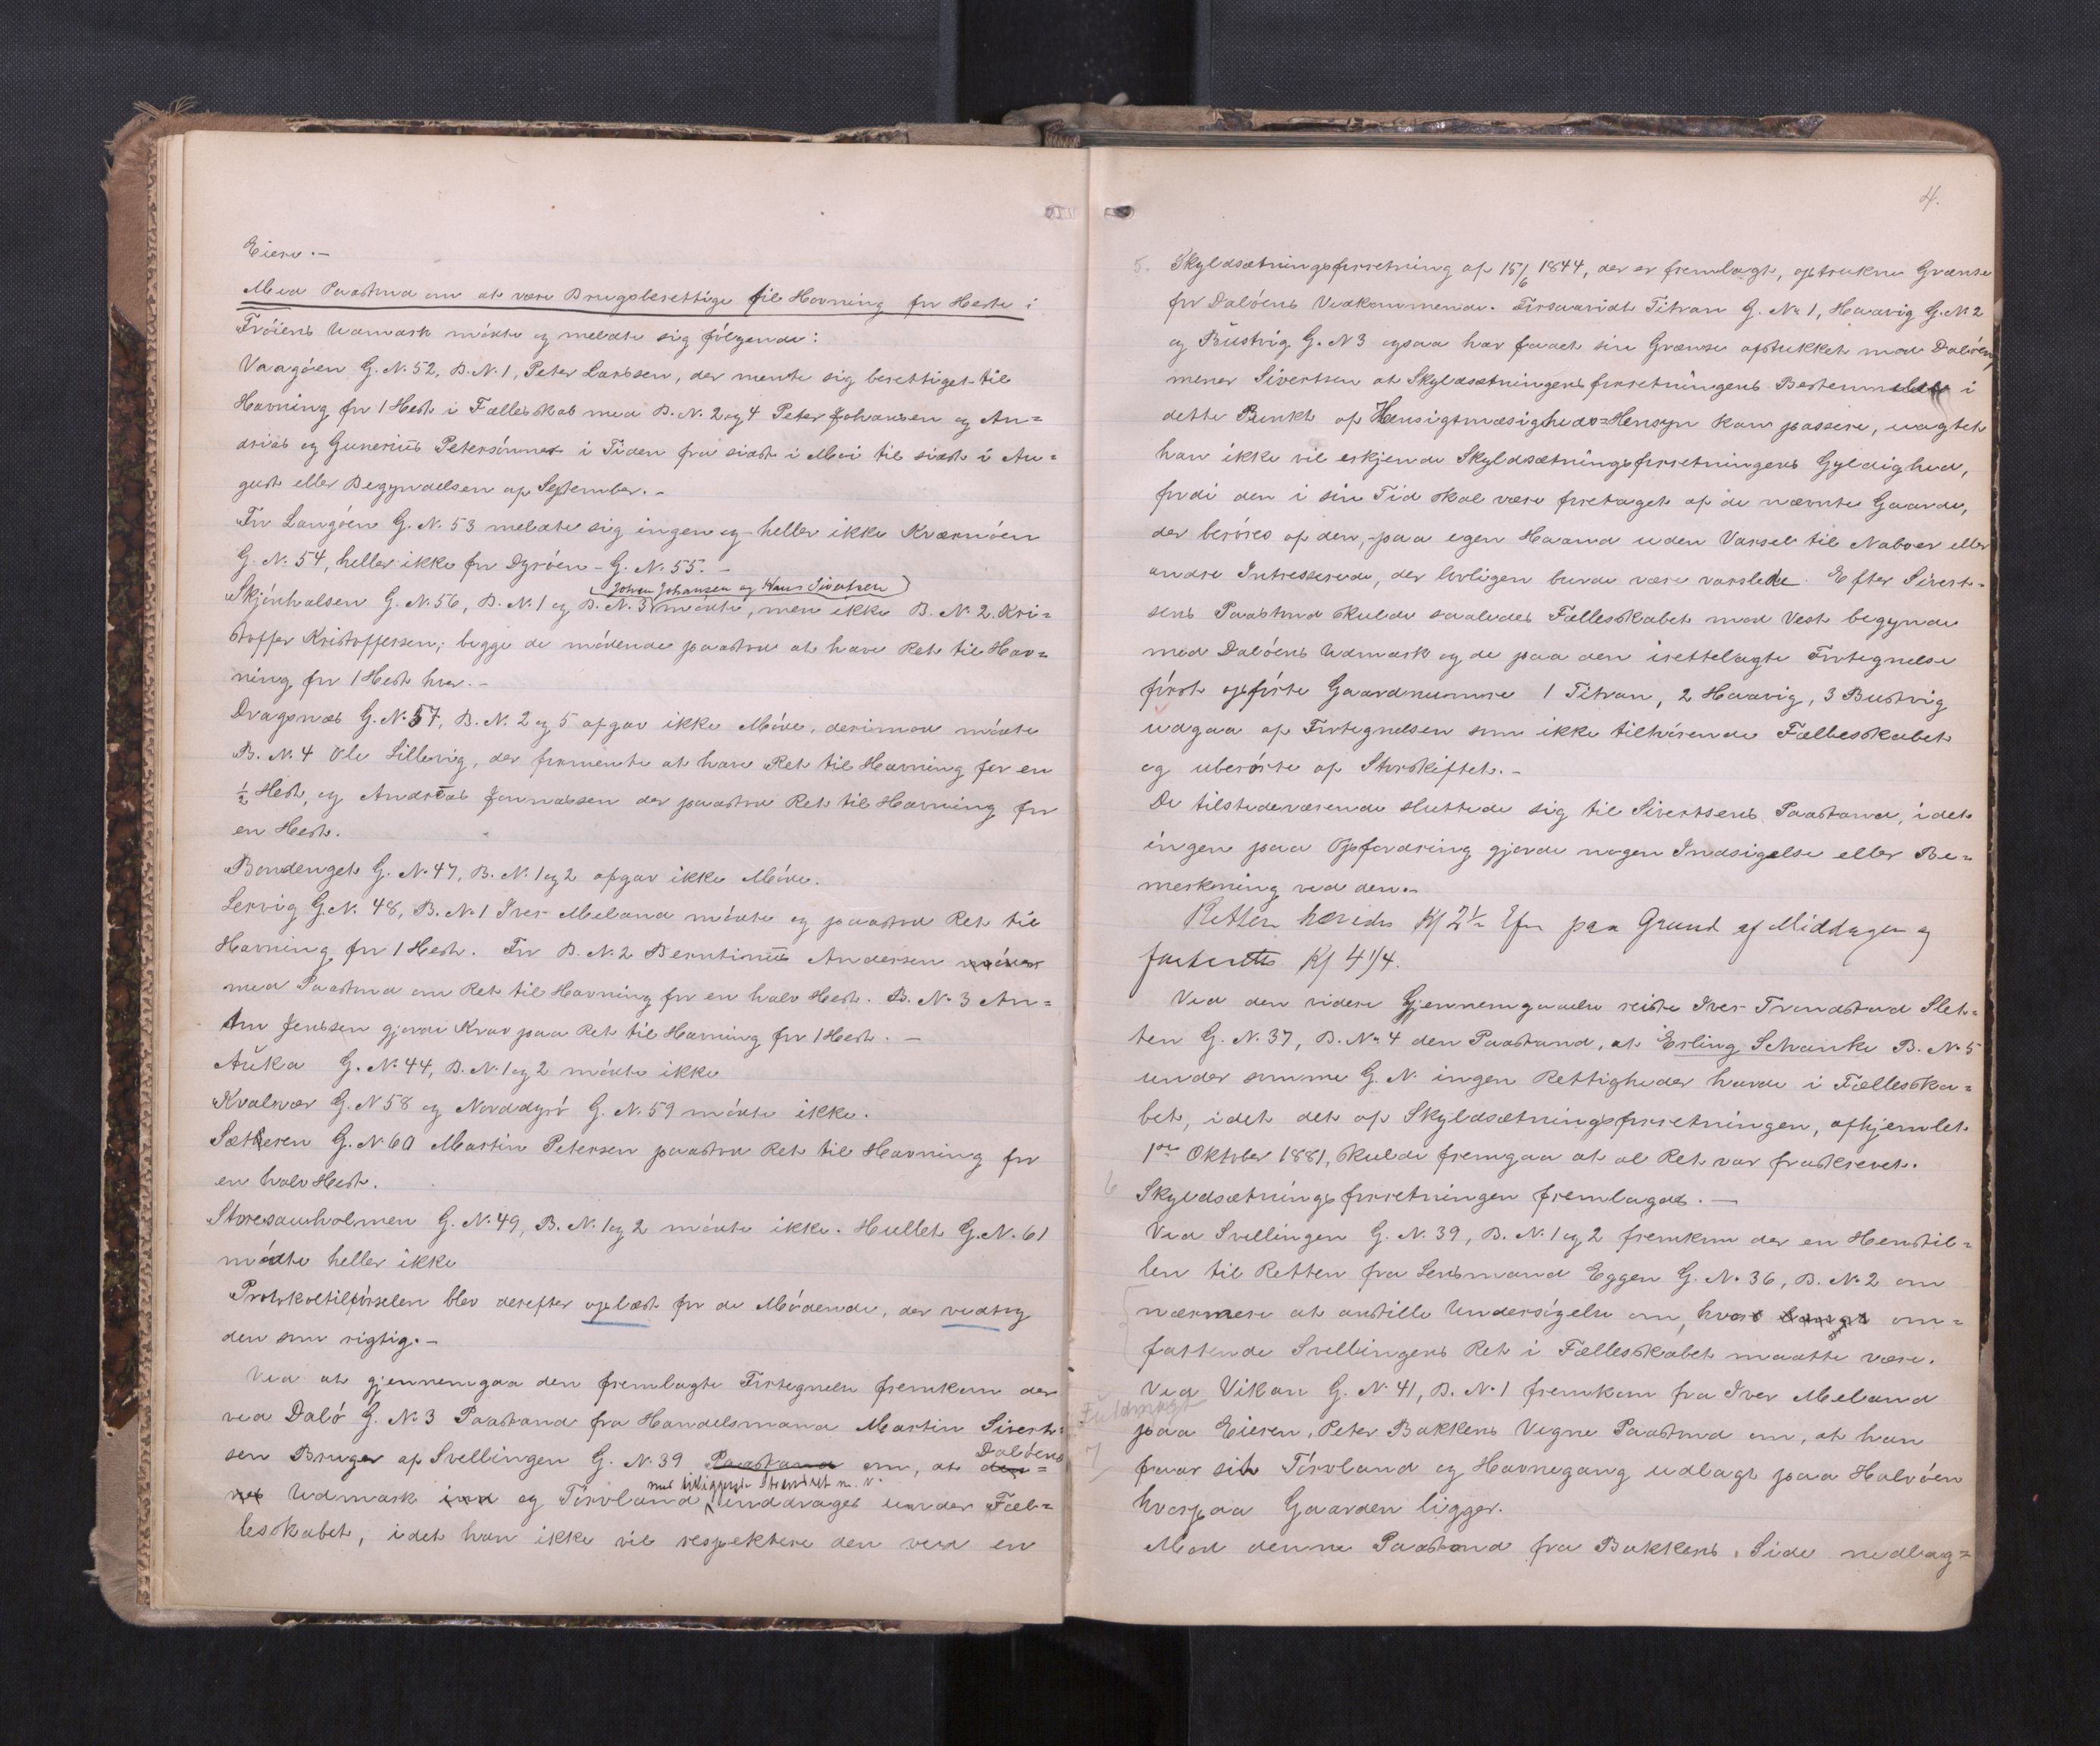 Eiere.-
Med Paastand om at være Brugsberettige til Havning for Heste i
Fröiens Udmark mödte og meldte sig fölgende:
Vaagöen G. N. 52, B. N. 1, Peter Larssen, der mente sig berettiget til
Havning for 1 Hest i Fællesskab med B. N. 2 og 4 Peter Johansen og An=
drias og Gunerius Petersönner i Tiden fra sidst i Mai til sidst i Au=
gust eller Begyndelsen af September.-
For Langöen G. N. 53 meldte sig ingen og heller ikke Kværnöen
G. N. 54, heller ikke for Dyröen - G. N. 55.-
(Johan Johansen og Hans Sivertsen)
Skjönhalsen G. N. 56, B. N. 1 og B. N. 3 mödte, men ikke B. N. 2 Kri=
stoffer Kristoffersen; begge de mödende paastod at have Ret til Hav=
ning for 1 Hest hver.-
Dragsnæs G. N. 57, B. N. 2 og 5 afgav ikke Möde, derimod mödte
B. N. 4 Ole Sillevig, der formente at have Ret til Havning for en
½ Hest, og Andreas Jonnassen der paastod Ret til Havning for
en Hest.
Bondenget G. N. 47, B. N. 1 og 2 afgav ikke Möde.
Lervig G. N. 48, B. N. 1 Iver Meland mödte og paastod Ret til
Havning for 1 Hest. For B. N. 2 Berntinius Andersen möder
med Paastand om Ret til Havning for en halv Hest. B. N. 3 An=
ton Jenssen gjorde Krav paa Ret til Havning for 1 Hest.-
Auka G. N. 44, B. N. 1 og 2 mödte ikke
Kvalvær G. N 58 og Norddyrö G. N. 59 mödte ikke.
Sætteren G. N. 60 Martin Petersen paastod Ret til Havning for
en halv Hest.
Storesauholmen G. N. 49, B. N. 1 og 2 mödte ikke. Hullet G. N. 61
mödte heller ikke
Protokoltilförselen blev derefter oplæst for de Mödende, der vedtog
den som rigtig.-
Ved at gjennemgaa den fremlagte Fortegnelse fremkom der
ved Dalö G. N. 3 Paastand fra Handelsmand Martin Sivert=
sen Bruger af Svellingen G. N. 39 Paastand om, at den= Dalöens
nes Udmark ind og Torvland med tilliggende Strandret m. v. inddrages under Fæl=
lesskabet, idet han ikke vil respektere den ved en
4.
5. Skyldsætningsforretning af 15/6 1844, der er fremlagt, optrukne Grænse
for Dalöens Vedkommende. Forsaavidt Titran G. No 1, Haavig G. N. 2
og Bustvig G. N 3 ogsaa har faaet sin Grænse afstukket mod Dalöen,
mener Sivertsen at Skyldsætningensforretningens Bestemmelse i
dette Punkt af Hensigtmæsigheds=Hensyn kan passere, uagtet
han ikke vil erkjende Skyldsætningsforretningens Gyldighed,
fordi den i sin Tid skal være foretaget af de nævnte Gaarde,
der beröres af den, paa egen Haand uden Varsel til Naboer eller
andre Intresserede, der lovligen burde være varslede. Efter Sivert=
sens Paastand skulde saaledes Fællesskabet mod Vest begynde
med Dalöens Udmark og de paa den irettelagte Fortegnelse
först opförte Gaardnumre 1 Titran, 2 Haavig, 3 Bustvig
udgaa af Fortegnelsen som ikke tilhörende Fællesskabet
og uberörte af Storskiftet.-
De tilstedeværende sluttede sig til Sivertsens Paastand, idet
ingen paa Opfordring gjorde nogen Indsigelse eller Be=
merkning ved den.-
Retten hævedes Kl 2½ Efm paa Grund af Middagen og
fortsattes Kl 4 1/4.
Ved den videre Gjennemgaaelse reiste Iver Trondstad Slet=
ten G. N. 37, B. No 4 den Paastand, at Erling Schanke B. N. 5
under samme G. N. ingen Rettigheder havde i Fællesska=
bet, idet det af Skyldsætningsforretningen, afhjemlet
1ste Oktober 1881, skulde fremgaa at al Ret var fraskrevet.
6 Skyldsætningsforretningen fremlagdes.-
Ved Svellingen G. N. 39, B. N. 1 og 2 fremkom der en Henstil=
len til Retten fra Lensmand Eggen G. N. 36, B. N. 2 om
nærmere at anstille Undersögelse om, hvor om=
fattende Svellingens Ret i Fællesskabet maatte være.
Ved Vikan G. N. 41, B. N. 1 fremkom fra Iver Meland
Fuldmagt
paa Eieren, Peter Bakkens Vegne Paastand om, at han
7 faar sit Törvland og Havnegang udlagt paa Halvöen
hvorpaa Gaarden ligger.
Mod denne Paastand fra Bakkens Side nedlag=